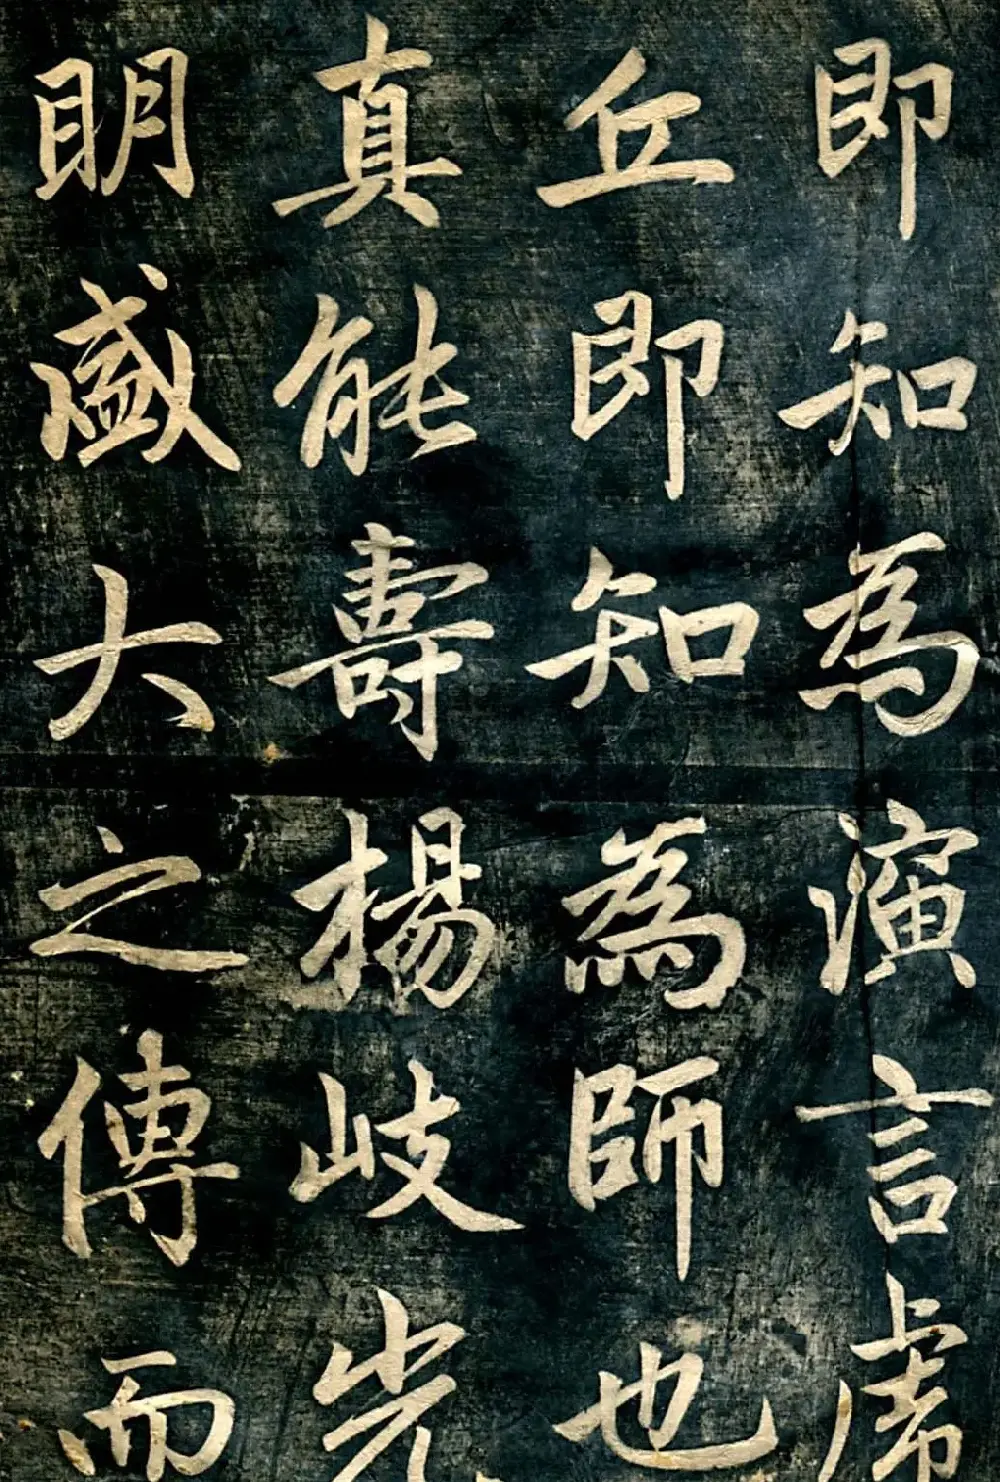 即知為演言虎
丘即知為師也
真能壽楊岐先
明盛大之傳而